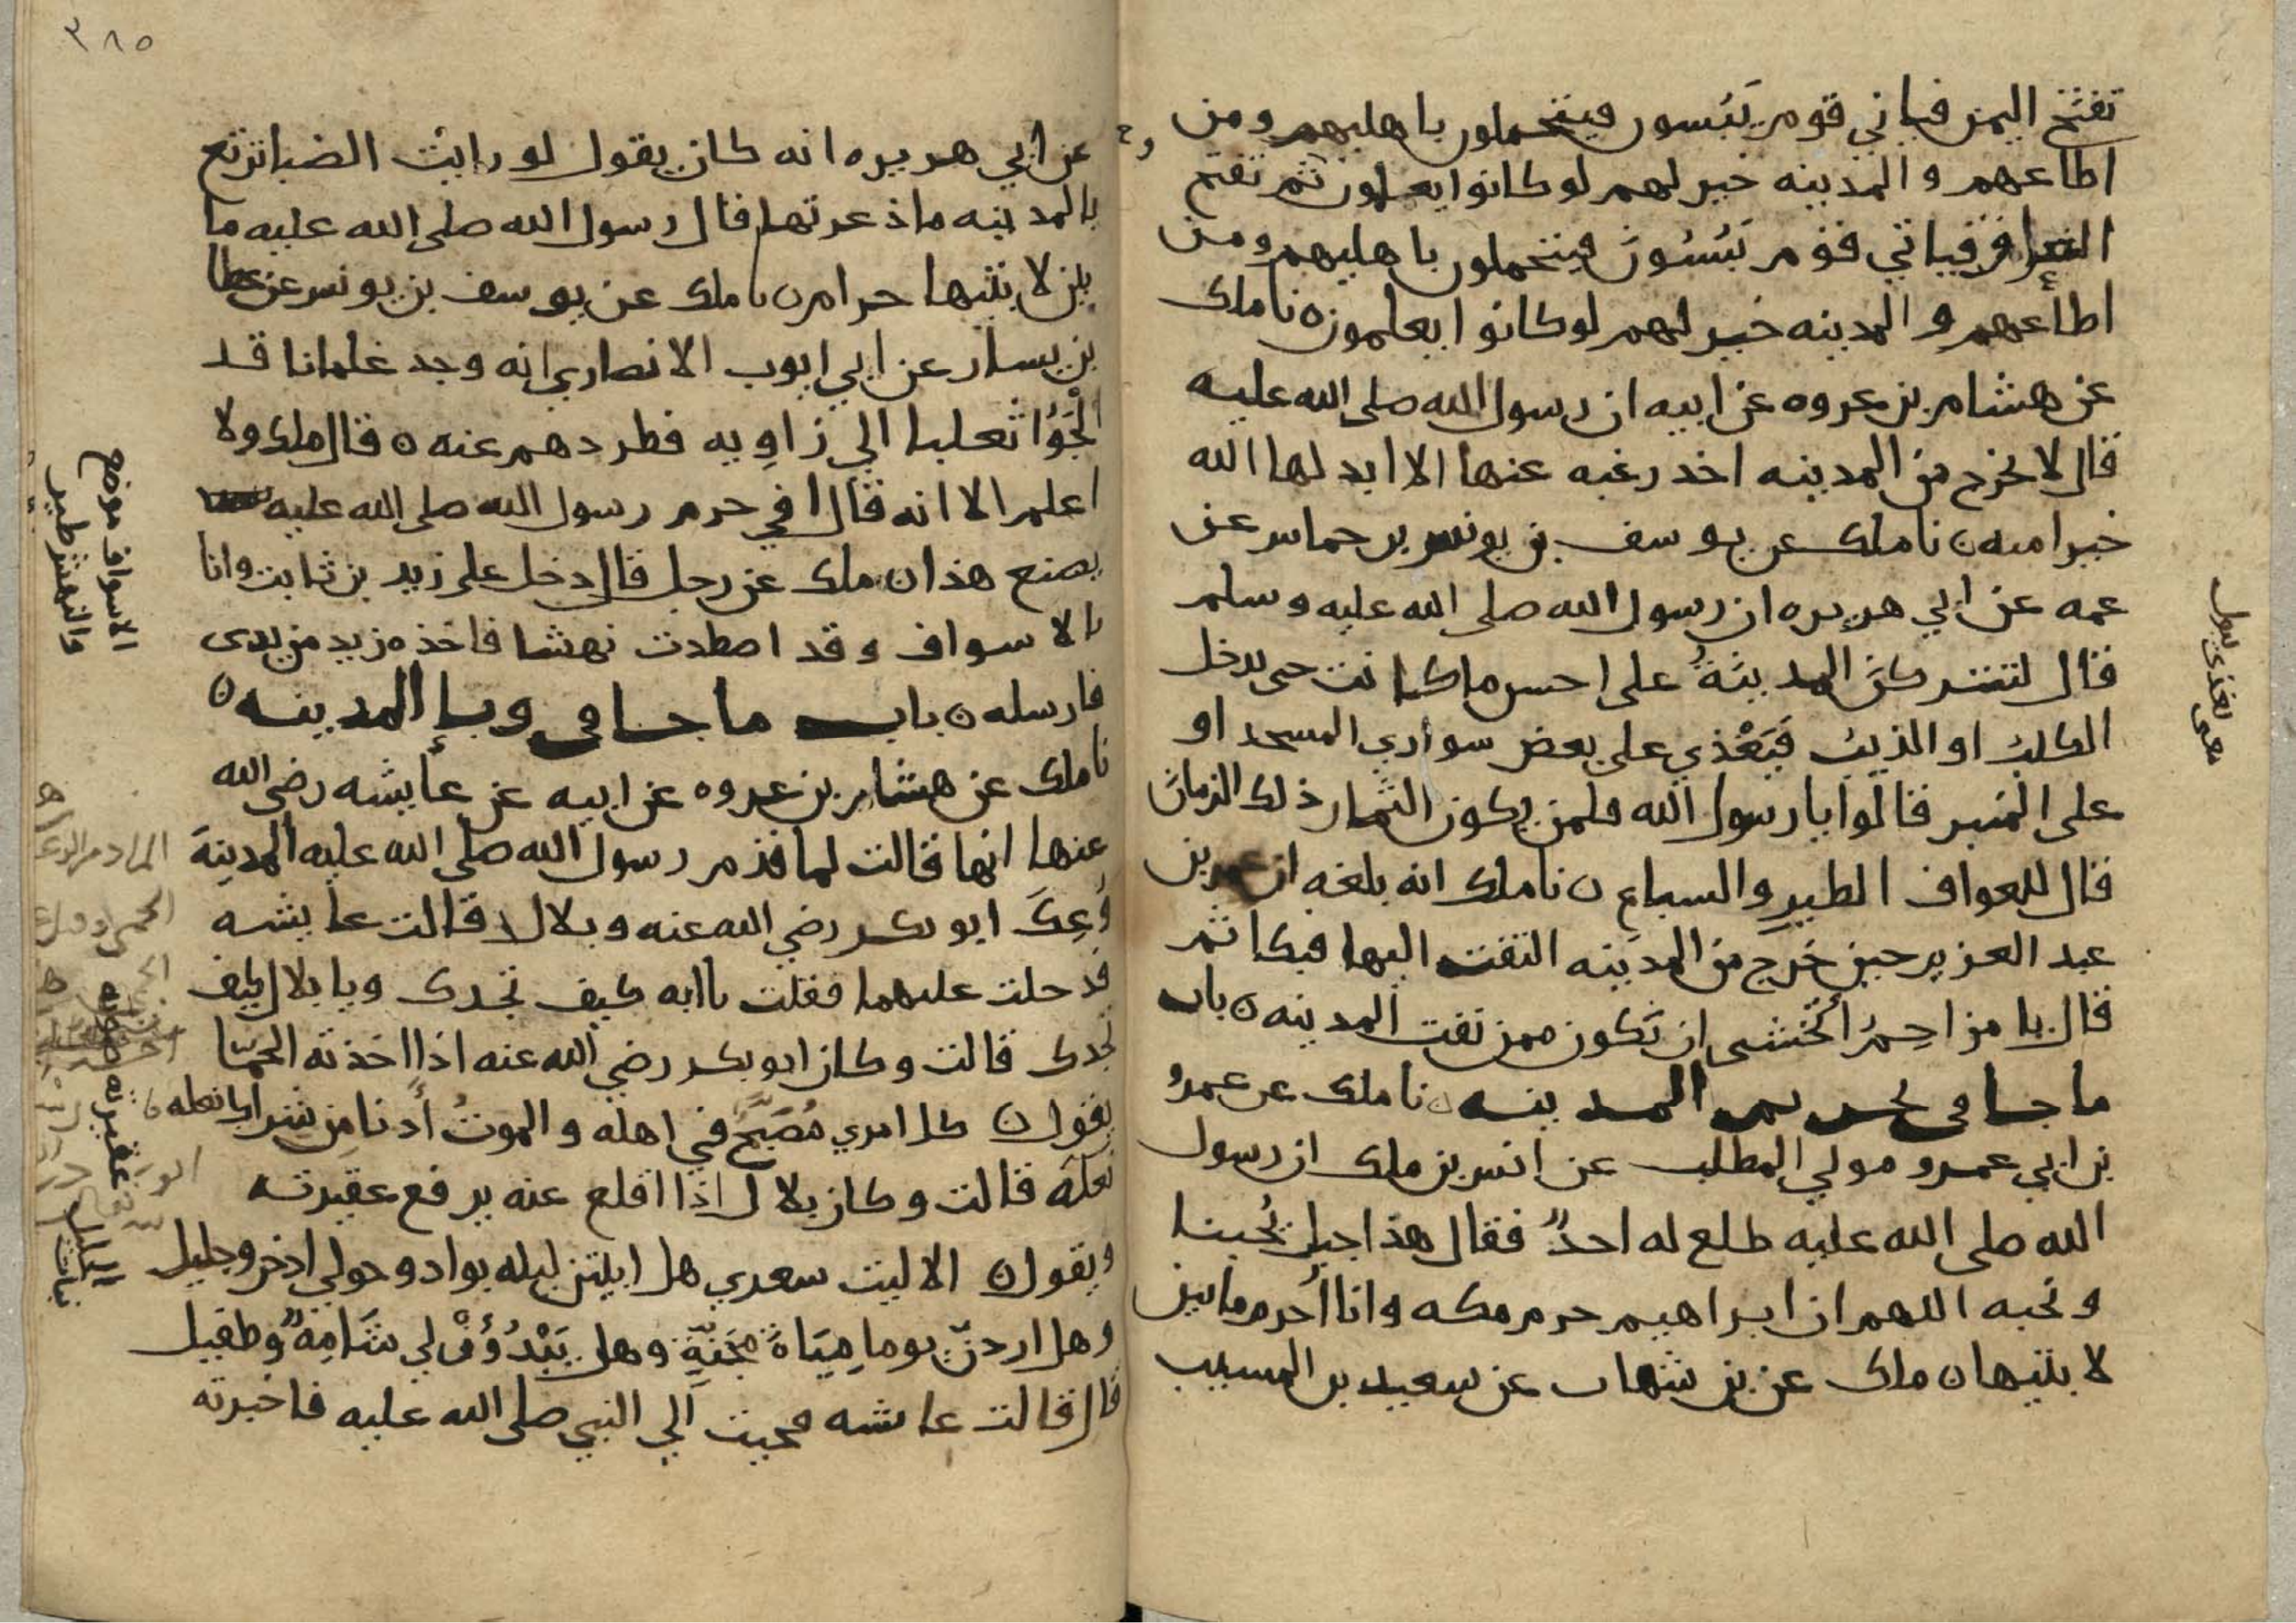 تفتح اليمن فياتي قوم يَبُسون فيتحملون باهليهم ومن
اطاعهم والمدينه خير لهم لو كانوا يعلمون ثم تفتح
العراق فياتي قوم يَبُسُونَ فيتحملون باهليهم ومن
اطاعهم والمدينه خير لهم لو كانوا يعلمون ٥ نا ملك
عن هشام بن عروه عن ابيه ان رسول الله صلى الله عليه
قال لا يخرج من المدينه احد رغبه عنها الا ابدلها الله
خيرا منه ن نا ملك عن يوسف بن يونس بن حماس عن
عمه عن ابي هريره ان رسول الله صلى الله عليه وسلم
قال لتتركنَّ المدينةُ على احسن ما كانت حتى يدخل
الكلب او الذيب فيَغْذي على بعض سواري المسجد او
على المنبر فقالوا يا رسول الله فلمن يكون الثمار ذلك الزمان
قال للعواف الطيرِ والسباعِ ن نا ملك انه بلغه ان عمر بن
عبد العزيز حين خرج من المدينه التفت اليها فبكا ثم
قال يا مزاحِمُ اتخشى ان تكون ممن نفت المدينه ن باب
ما جا في تحريم المدينه ن نا ملك عن عمرو
بن ابي عمرو مولي المطلب عن انس بن ملك ان رسول
الله صلى الله عليه طلع له احدٌ فقال هذا جبل يُحبنا
ونحبه اللهم ان ابراهيم حرم مكه وانا اُحرم ما بين
لابتيها ن ملك عن بن شهاب عن سعيد بن المسيب
معنى يغذي يبول
٣٨٥
عن ابي هريره انه كان يقول لو رايت الضبا ترتع
بالمدينه ما ذعرتها قال رسول الله صلى الله عليه ما
بين لابتيها حرام ن نا ملك عن يوسف بن يونس عن عطا
بن يسار عن ابي ايوب الانصاري انه وجد غلمانا قد
الْجَؤُا ثعلبا الي زاويه فطردهم عنه ٥ قال ملك ولا
اعلم الا انه قال افي حرم رسول الله صلى الله عليه
يصنع هذا ن ملك عن رجل قال دخل علي زيد بن ثابت وانا
بالاسواف وقد اصطدت نهشا فاخذه زيد من يدى
فارسله ن باب ما جا في وبإ المدينه ٥
نا ملك عن هشام بن عروه عن ابيه عن عايشه رضي الله
عنها انها قالت لما قدم رسول الله صلى الله عليه المدينةَ
وُعِكَ ابو بكر رضي الله عنه وبلال قالت عايشه
فدخلت عليهما فقلت يا ابه كيف تجدك ويا بلال كيف
تجدك قالت وكان ابو بكر رضي الله عنه اذا اخذته الحمّا
يقول ن كل امري مُصَبَّحٌ في اهله والموتُ أدنا مِن شراك نعله ن
نعله قالت وكان بلال اذا اقلع عنه يرفع عقيرته
ويقول ن الا ليت سعري هل ابيتن ليله بواد وحولي اذخر وجليل
وهل اردنّ يوما مِيَاهَ مَجَنّةٍ وهل يَبْدُوَنْ لي شَامةٌ وطفيل
قال قالت عايشه فجيت الي النبي صلى الله عليه فاخبرته
الاسواف موضع
والنهش طير
عقيرته صوته
الجليل نبات